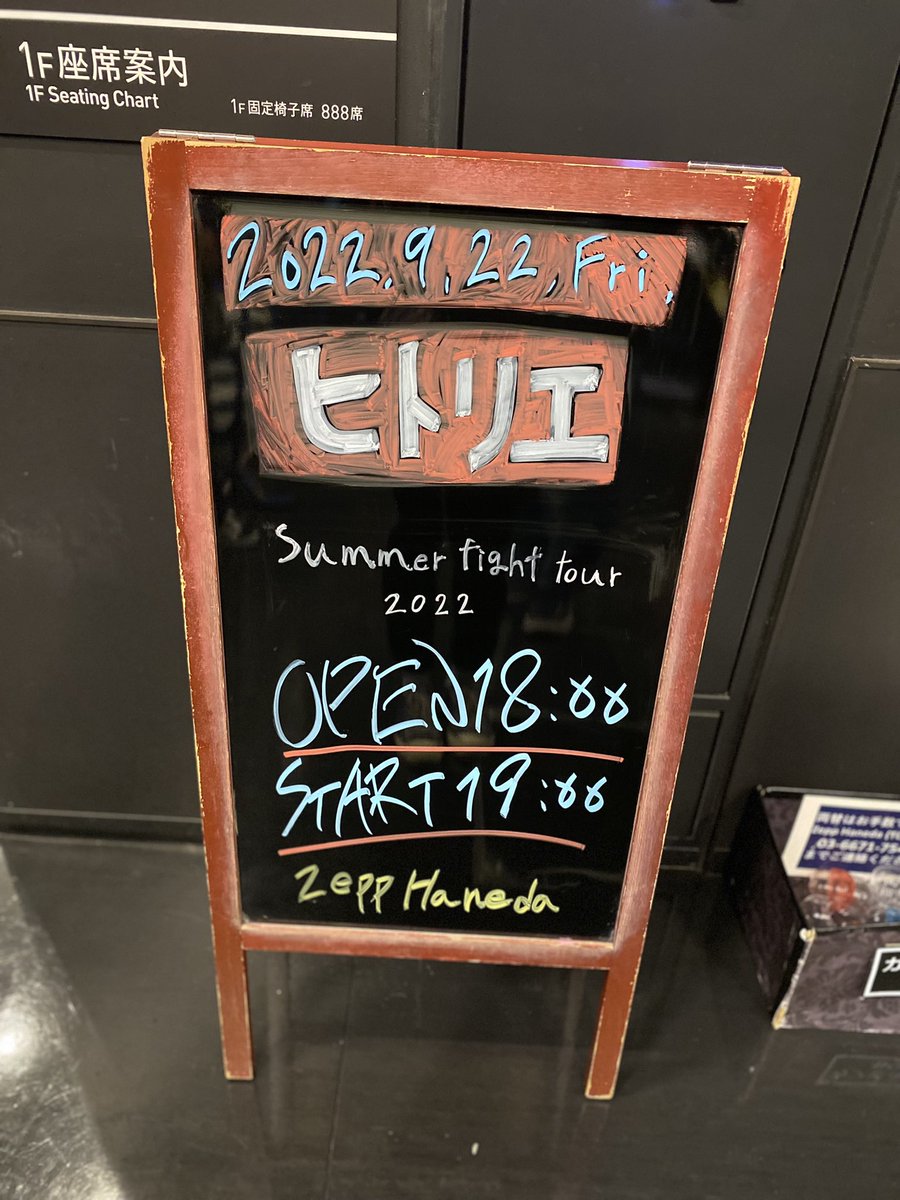 1F座席案内
1F Seating Chart
1F固定椅子席 888席
2022.9.22.Fri.
ヒトリエ
Summer fight tour
2022
OPEN 18:00
START 19:00
Zepp Haneda
両替はお手数で
Zepp Haneda (TO
03-6671-75
までご連絡くださ
カ